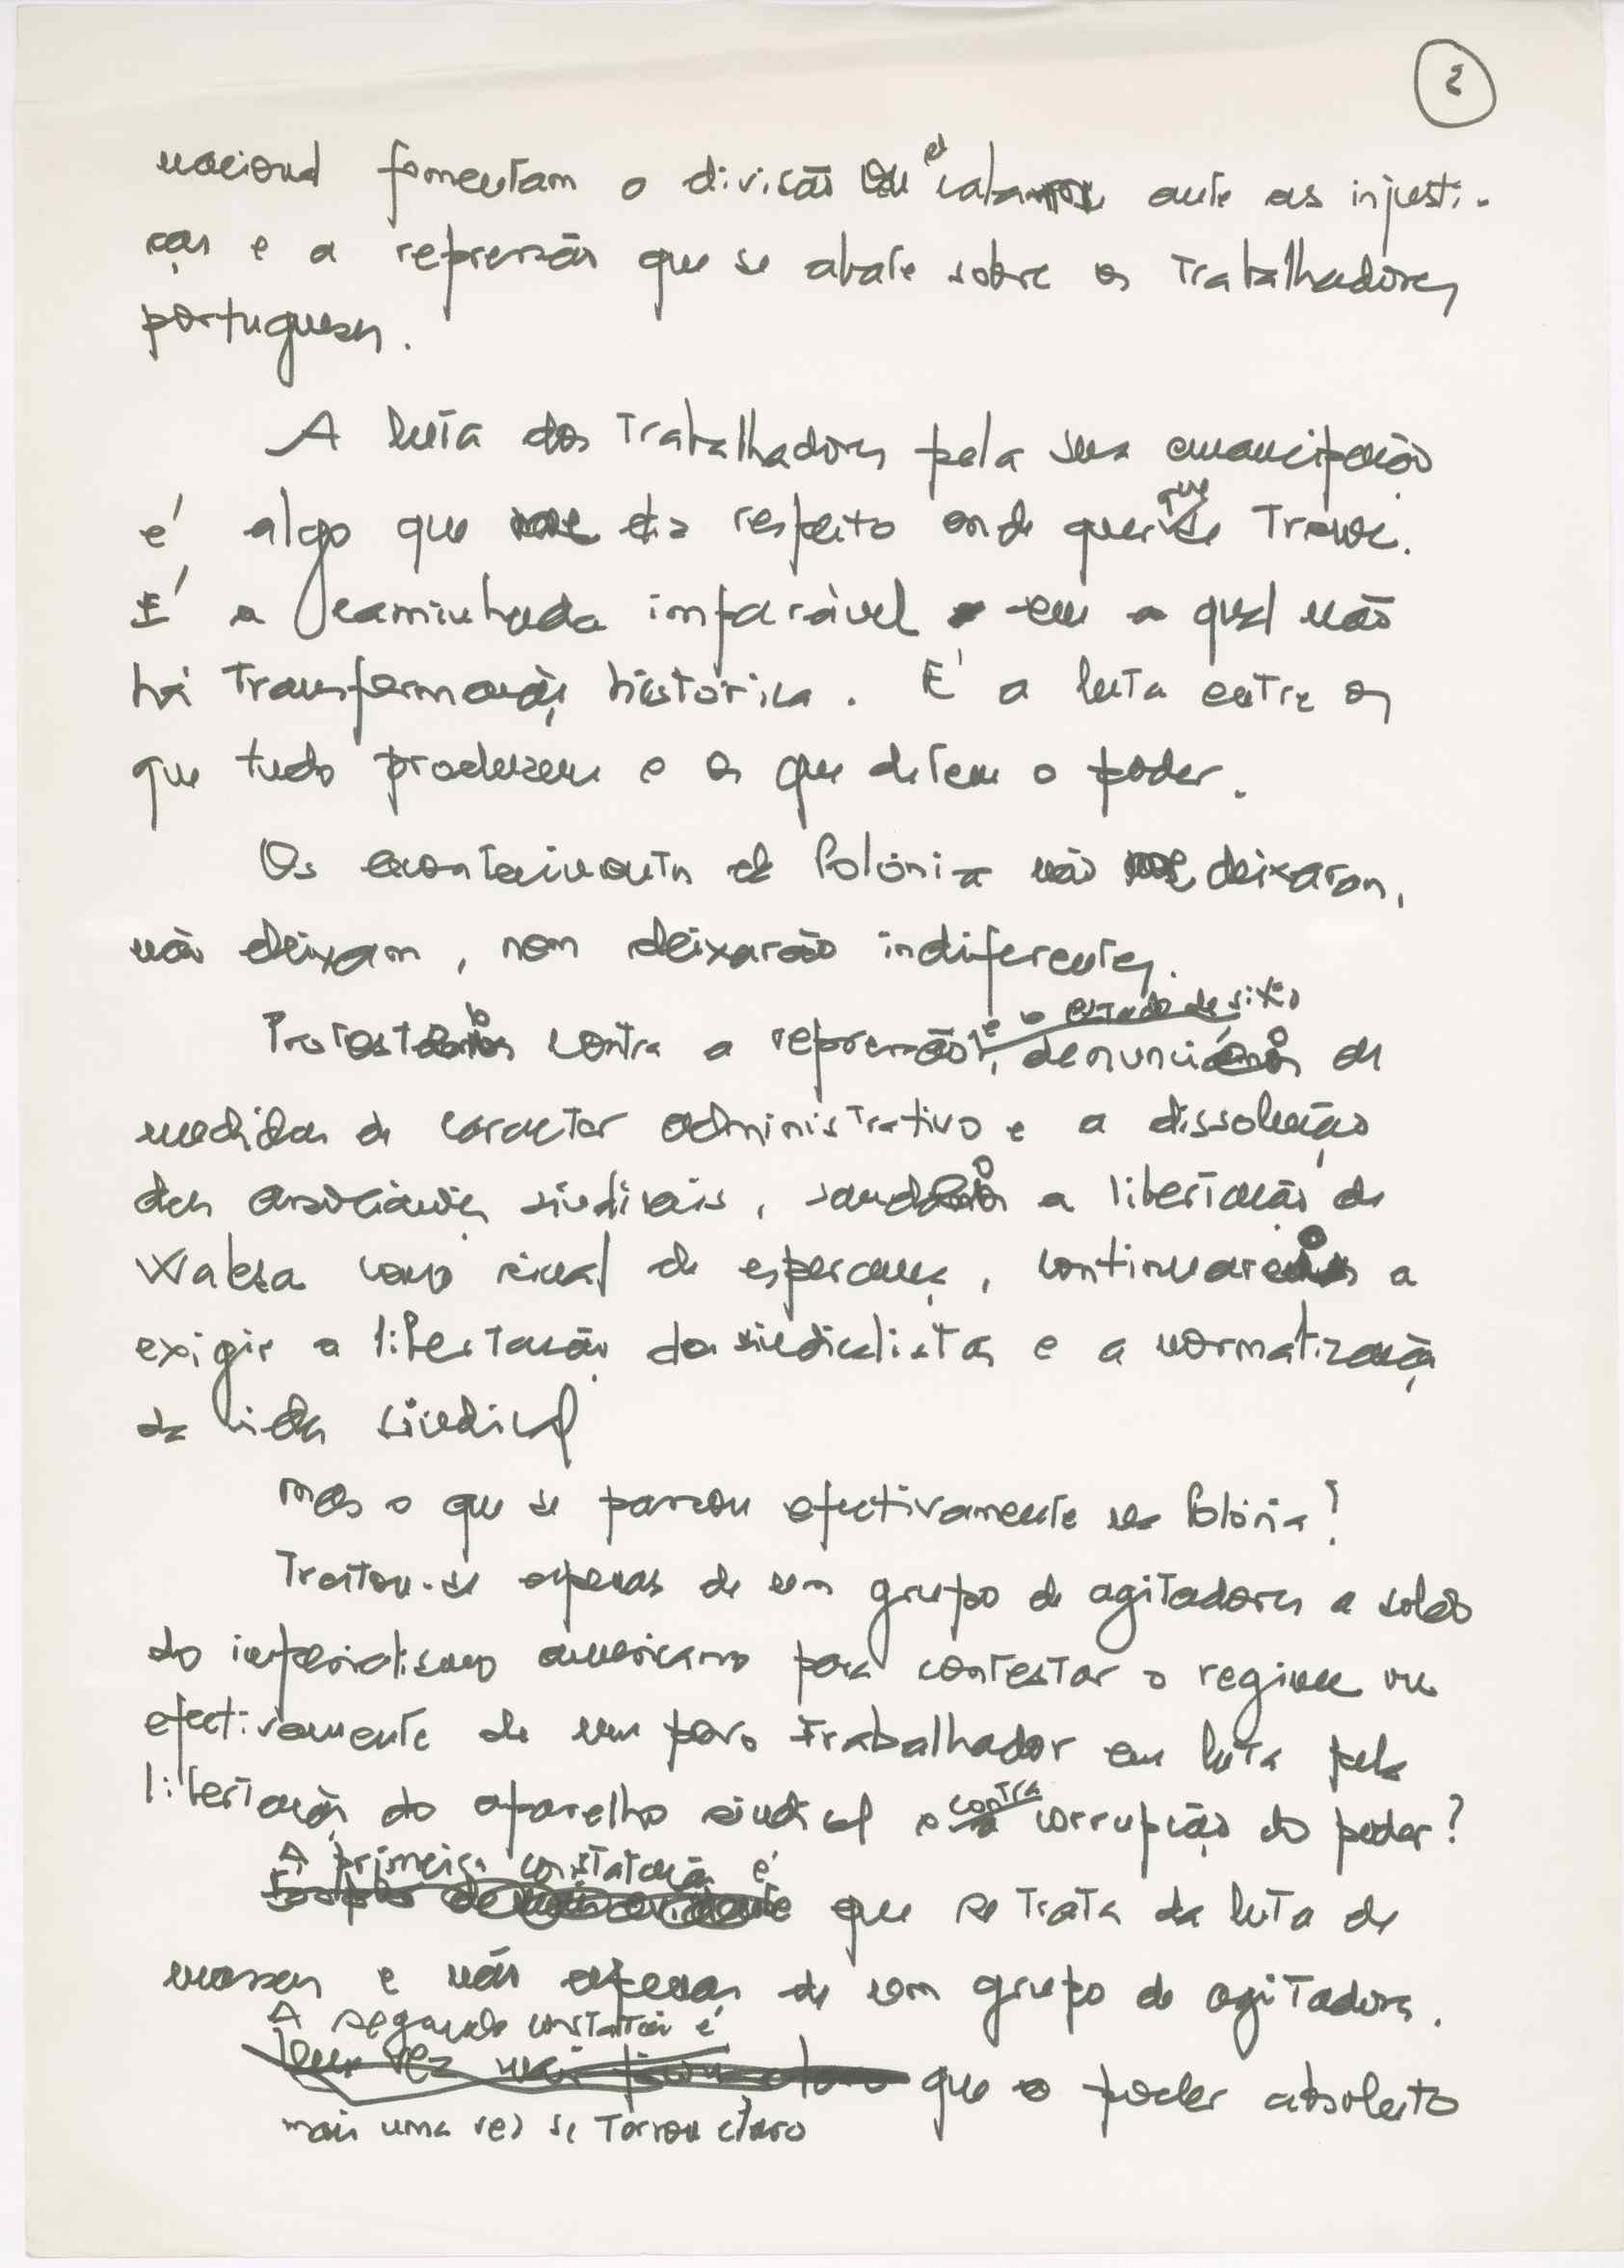 2
nacional fomentam a divisão ou calam ante as injusti-
ças e a repressão que se abate sobre os trabalhadores
portugueses.
A luta dos trabalhadores pela sua emancipação
é algo que diz respeito onde quer que se trave.
É a caminhada imparável sem a qual não
há transformação histórica. É a luta entre os
que tudo produzem e os que detem o poder.
Os acontecimentos da Polónia não me deixaram,
não deixam, nem deixarão indiferentes.
e o estado de sítio
Protesto contra a repressão, denuncio as
medidas de caracter administrativo e a dissolução
das associações sindicais, saudo a libertação de
Walesa como sinal de esperança, continuarei a
exigir a libertação dos sindicalistas e a normatização
da vida sindical
Mas o que se passou efectivamente na Polónia?
Tratou-se apenas de um grupo de agitadores a soldo
do imperialismo americano para contestar o regime ou
efectivamente de um povo trabalhador em luta pela
libertação do aparelho sindical e contra a corrupção do poder?
A primeira constatação é
que se trata da luta de
massas e não apenas de um grupo de agitadores.
A segunda constatação é
que o poder absoluto
mais uma vez se tornou claro